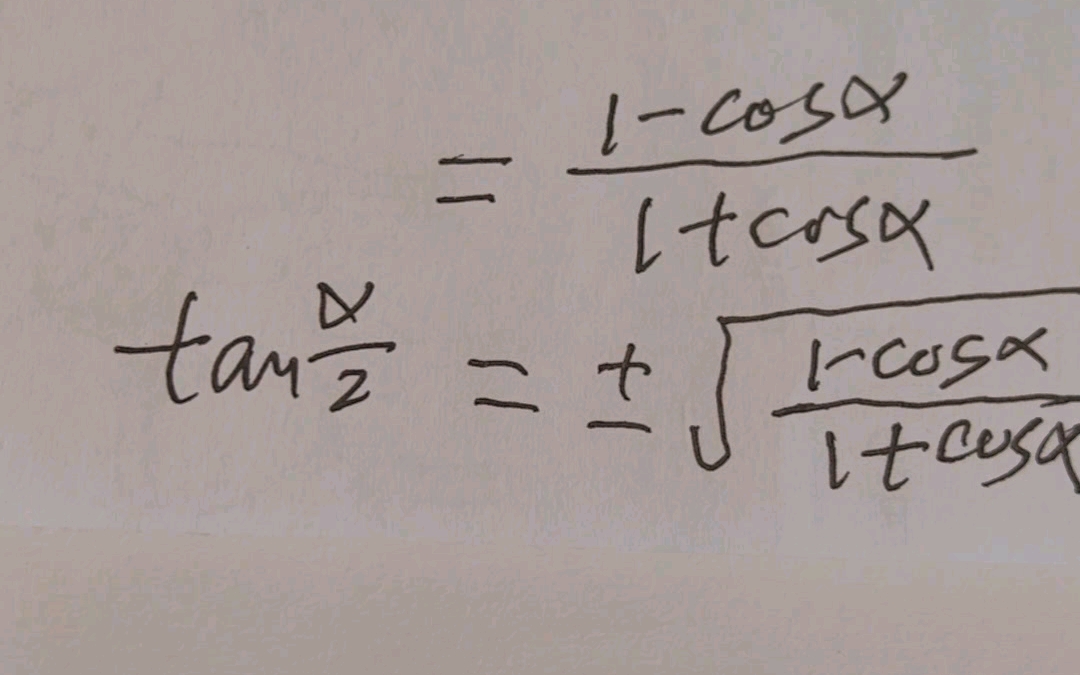 = (1-cosα)/(1+cosα)
tan α/2 = ± √((1-cosα)/(1+cosα))